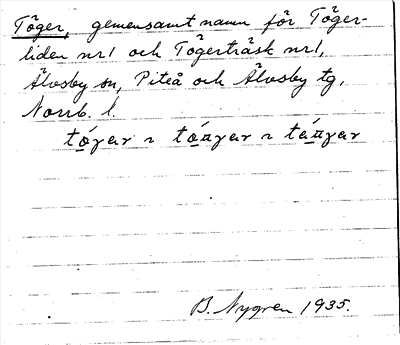 Töger, gemensamt namn för Töger-
liden nr 1 och Tögerträsk nr 1,
Älvsby sn, Piteå och Älvsby tg,
Norrb. l.
B. Nygren 1935.